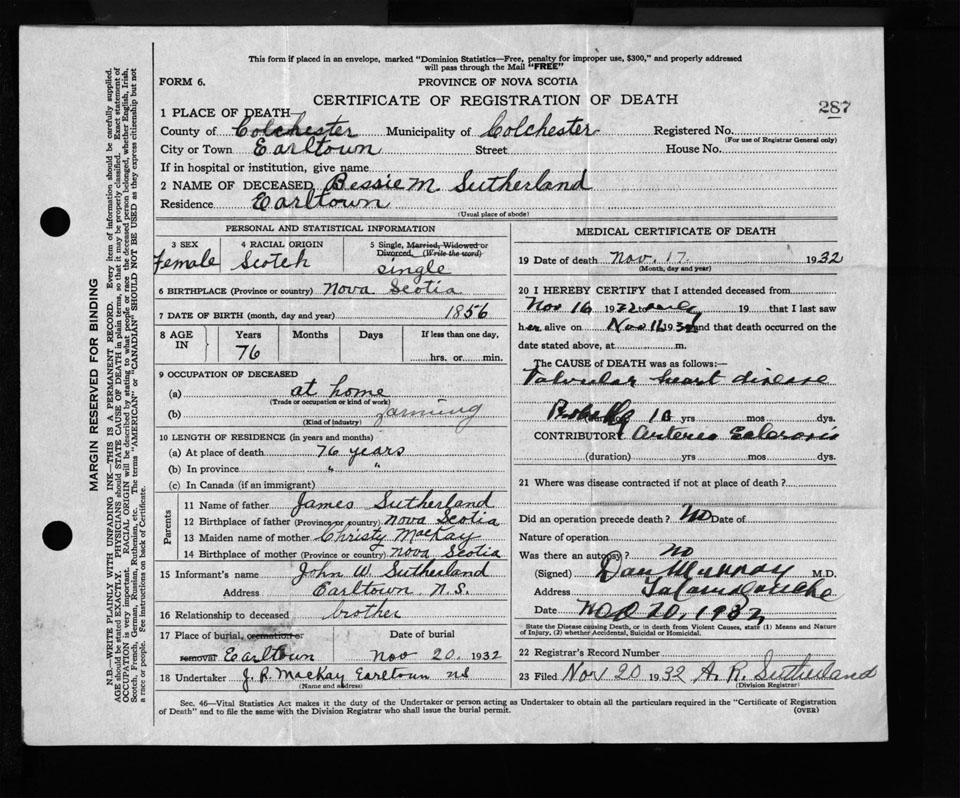 This form if placed in an envelope, marked "Dominion Statistics—Free, penalty for improper use, $300," and properly addressed
will pass through the Mail "FREE"
FORM 6. PROVINCE OF NOVA SCOTIA
CERTIFICATE OF REGISTRATION OF DEATH
287
1 PLACE OF DEATH
County of Colchester Municipality of Colchester Registered No.
(For use of Registrar General only)
City or Town Earltown Street House No.
If in hospital or institution, give name
2 NAME OF DECEASED Bessie M. Sutherland
Residence Earltown
(Usual place of abode)
PERSONAL AND STATISTICAL INFORMATION
3 SEX 4 RACIAL ORIGIN 5 Single, Married, Widowed or
Divorced. (Write the word)
Female Scotch single
6 BIRTHPLACE (Province or country) Nova Scotia
7 DATE OF BIRTH (month, day and year) 1856
8 AGE IN Years Months Days If less than one day,
76 hrs. or min.
9 OCCUPATION OF DECEASED
(a) at home
(Trade or occupation or kind of work)
(b) farming
(Kind of industry)
10 LENGTH OF RESIDENCE (in years and months)
(a) At place of death 76 years
(b) In province " "
(c) In Canada (if an immigrant)
Parents
11 Name of father James Sutherland
12 Birthplace of father (Province or country) Nova Scotia
13 Maiden name of mother Christy MacKay
14 Birthplace of mother (Province or country) Nova Scotia
15 Informant's name John W. Sutherland
Address Earltown N.S.
16 Relationship to deceased brother
17 Place of burial, cremation or Date of burial
removal Earltown Nov 20. 1932
18 Undertaker J. R. MacKay Earltown NS
(Name and address)
MEDICAL CERTIFICATE OF DEATH
19 Date of death Nov. 17. 1932
(Month, day and year)
20 I HEREBY CERTIFY that I attended deceased from
Nov 16 1932 only 19 that I last saw
her alive on Nov 16 1932 and that death occurred on the
date stated above, at m.
The CAUSE of DEATH was as follows:—
Valvular heart disease
Probably (duration) 10 yrs mos dys.
CONTRIBUTORY Arterio Sclerosis
(duration) yrs mos dys.
21 Where was disease contracted if not at place of death?
Did an operation precede death? No Date of
Nature of operation
Was there an autopsy? no
(Signed) Dan Murray M.D.
Address Tatamagouche
Date Nov 20, 1932
State the Disease causing Death, or in death from Violent Causes, state (1) Means and Nature
of Injury, (2) whether Accidental, Suicidal or Homicidal.
22 Registrar's Record Number
23 Filed Nov 20 1932 A. R. Sutherland
(Division Registrar)
Sec. 46—Vital Statistics Act makes it the duty of the Undertaker or person acting as Undertaker to obtain all the particulars required in the "Certificate of Registration
of Death" and to file the same with the Division Registrar who shall issue the burial permit. (OVER)
MARGIN RESERVED FOR BINDING
N.B.—WRITE PLAINLY WITH UNFADING INK—THIS IS A PERMANENT RECORD. Every item of information should be carefully supplied.
AGE should be stated EXACTLY. PHYSICIANS should STATE CAUSE OF DEATH in plain terms, so that it may be properly classified. Exact statement of
OCCUPATION is very important. RACIAL ORIGIN will be described by stating to what people or race the deceased person belonged, whether English, Irish,
Scotch, French, German, Russian, Ruthenian, etc. The terms "AMERICAN" or "CANADIAN" SHOULD NOT BE USED as they express citizenship but not
a race or people. See instructions on back of Certificate.